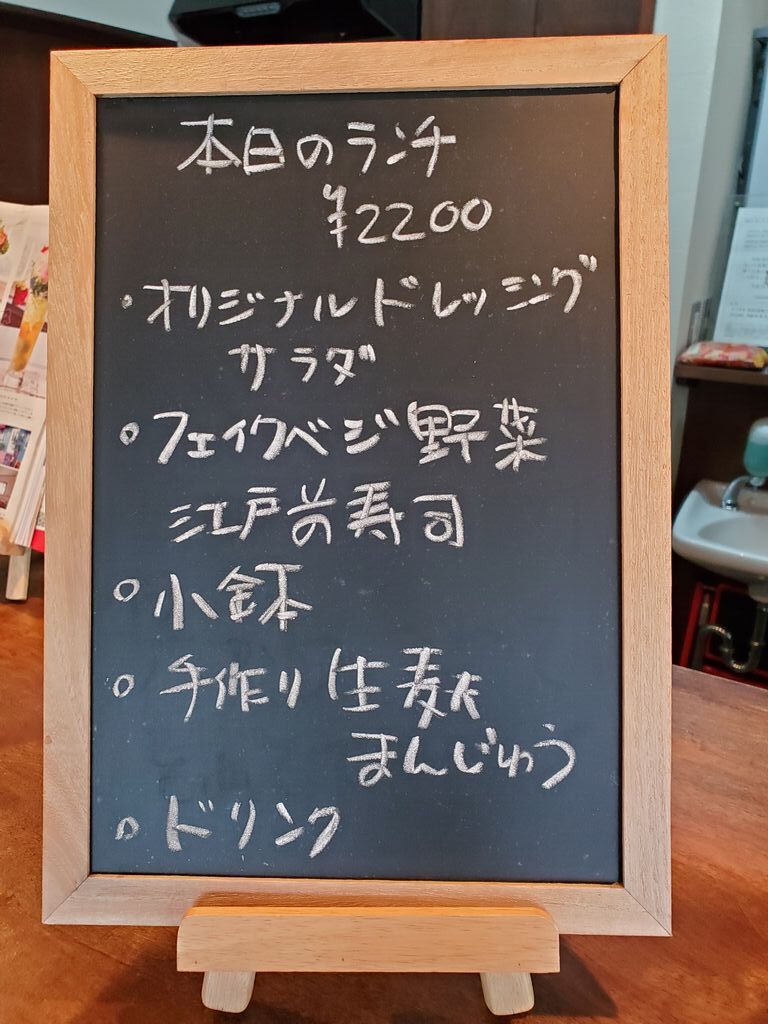 本日のランチ
¥2200
・オリジナルドレッシング
サラダ
○フェイクベジ野菜
江戸前寿司
○小鉢
○手作り生麩
まんじゅう
○ドリンク